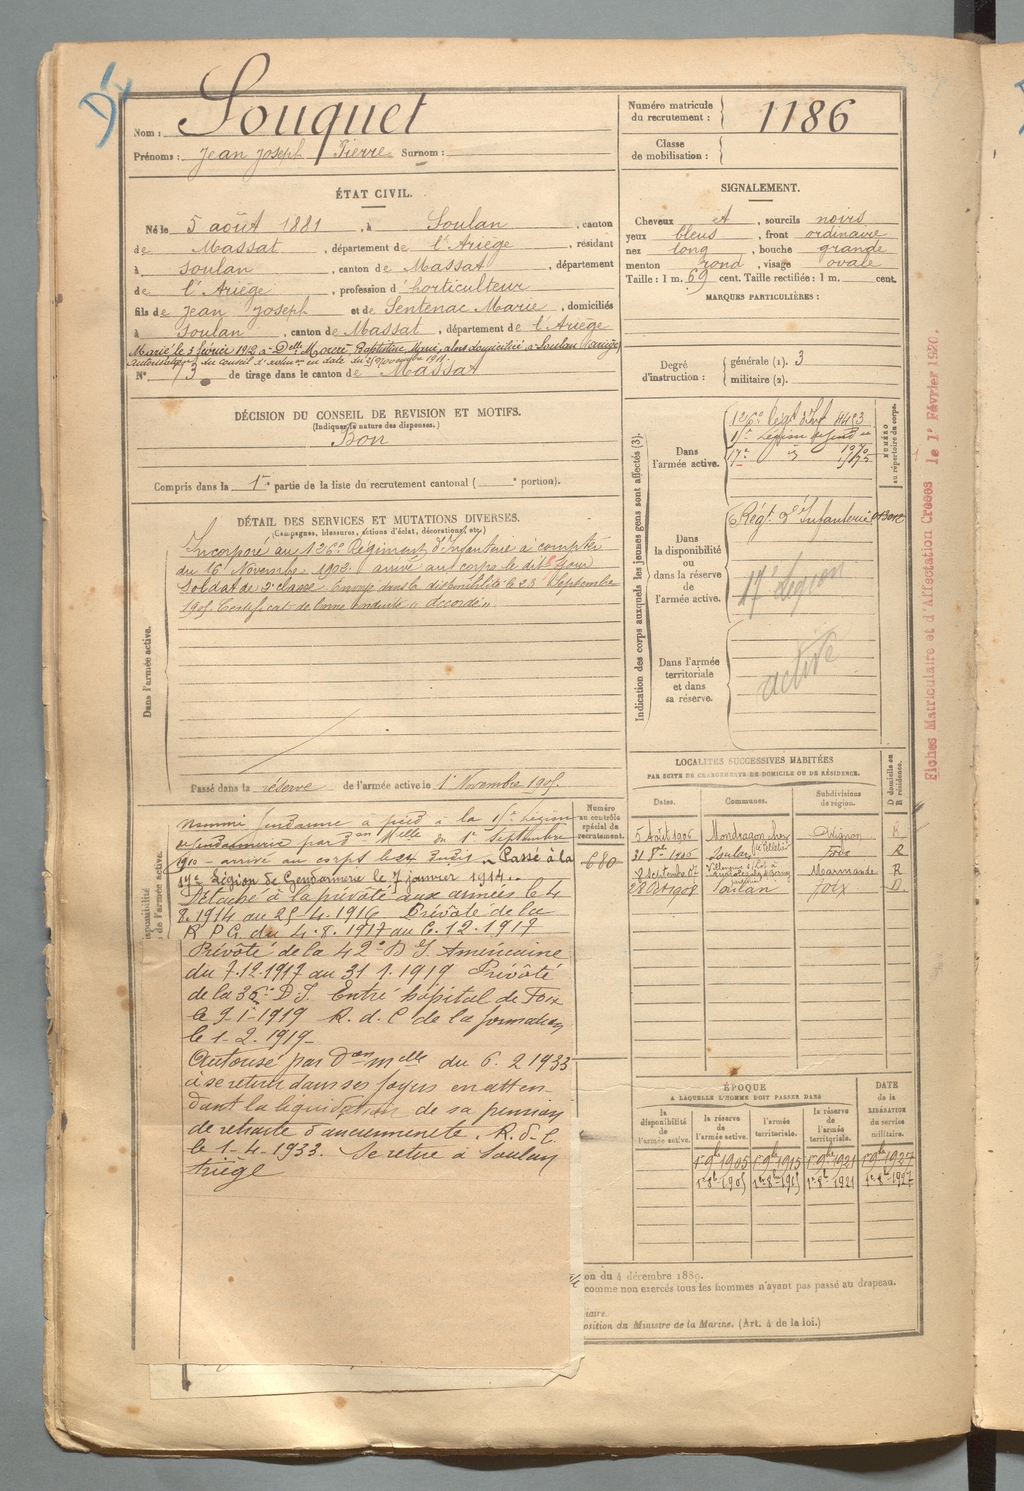 Nom : Souquet
Prénoms : Jean Joseph Pierre Surnom :
Numéro matricule du recrutement : 1186
Classe de mobilisation :
ÉTAT CIVIL.
Né le 5 août 1881, à Soulan, canton
de Massat, département de l'Ariège, résidant
à Soulan, canton de Massat, département
de l'Ariège, profession d'horticulteur
fils de Jean Joseph et de Sentenac Marie, domiciliés
à Soulan, canton de Massat, département de l'Ariège
Marié le 3 février 1912 à Delle Baptistine Marie, alors domiciliée à Soulan (Ariège)
N° 73 de tirage dans le canton de Massat
SIGNALEMENT.
Cheveux et, sourcils noirs
yeux bleus, front ordinaire
nez long, bouche grande
menton rond, visage ovale
Taille : 1 m. 69 cent. Taille rectifiée : 1 m. cent.
MARQUES PARTICULIÈRES :
Degré d'instruction : générale (1). 3
militaire (2).
DÉCISION DU CONSEIL DE REVISION ET MOTIFS.
(Indiquer la nature des dispenses.)
Bon
Compris dans la 1re partie de la liste du recrutement cantonal ( e portion).
DÉTAIL DES SERVICES ET MUTATIONS DIVERSES.
(Campagnes, blessures, actions d'éclat, décorations, etc.)
Dans l'armée active.
Incorporé au 126e Régiment d'Infanterie à compter
du 16 Novembre 1902 arrivé au corps le dit jour
Soldat de 2e classe. Envoyé dans la disponibilité le 23 Septembre
1905 Certificat de bonne conduite "Accordé".
Passé dans la réserve de l'armée active le 1er Novembre 1905.
Indication des corps auxquels les jeunes gens sont affectés (3).
NUMÉRO au répertoire du corps.
Dans l'armée active.
126e Régt d'Inf 8483
15e Légion de Gend
17e
Dans la disponibilité ou dans la réserve de l'armée active.
Régt d'Infanterie
17e légion
Dans l'armée territoriale et dans sa réserve.
active
Fiches Matriculaire et d'Affectation Creees le 1r Février 1920.
LOCALITÉS SUCCESSIVES HABITÉES
PAR SUITE DE CHANGEMENTS DE DOMICILE OU DE RÉSIDENCE.
D domicile ou R résidence.
Dates. Communes. Subdivisions de région.
5 Août 1906 Mondragon Avignon R
Soulan Foix R
Marmande R
28 Oct 1908 Soulan Foix D
Numéro au contrôle spécial du recrutement.
680
Nommé Gendarme à pied à la 15e Légion
de Gendarmerie par Don Mlle du 1er Septembre
1910 - arrivé au corps le 24 dudit. Passé à la
17e Légion de Gendarmerie le 7 janvier 1914.
Détaché à la prévôté aux armées le 4
8.1914 au 25-4-1916 Prévôté de la
R P G. du 4.8.1917 au 6.12.1917
Prévôté de la 42e D I. Américaine
du 7.12.1917 au 31 1.1919 Prévôté
de la 36e D.I. Entré hôpital de Foix
le 9-1-1919 R.d.C de la formation
le 1-2.1919-
Autorisé par Don Melle du 6.2 1933
à se retirer dans ses foyers en atten-
dant la liquidation de sa pension
de retraite d'ancienneté. R.d.C.
le 1-4-1933. Se retire à Soulan
Ariège
ÉPOQUE
A LAQUELLE L'HOMME DOIT PASSER DANS
la disponibilité de l'armée active.
la réserve de l'armée active.
l'armée territoriale.
la réserve de l'armée territoriale.
DATE de la LIBÉRATION du service militaire.
1er 9bre 1905 1er 9bre 1915 1er 9bre 1921 1er 9bre 1927
1er 8bre 1905 1er 8bre 1915 1er 8bre 1921 1er 8bre 1927
on du 4 décembre 1889.
comme non exercés tous les hommes n'ayant pas passé au drapeau.
iaire.
osition du Ministre de la Marine. (Art. 4 de la loi.)